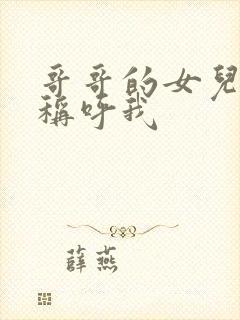 哥哥的女兒
稱呼我
薛燕